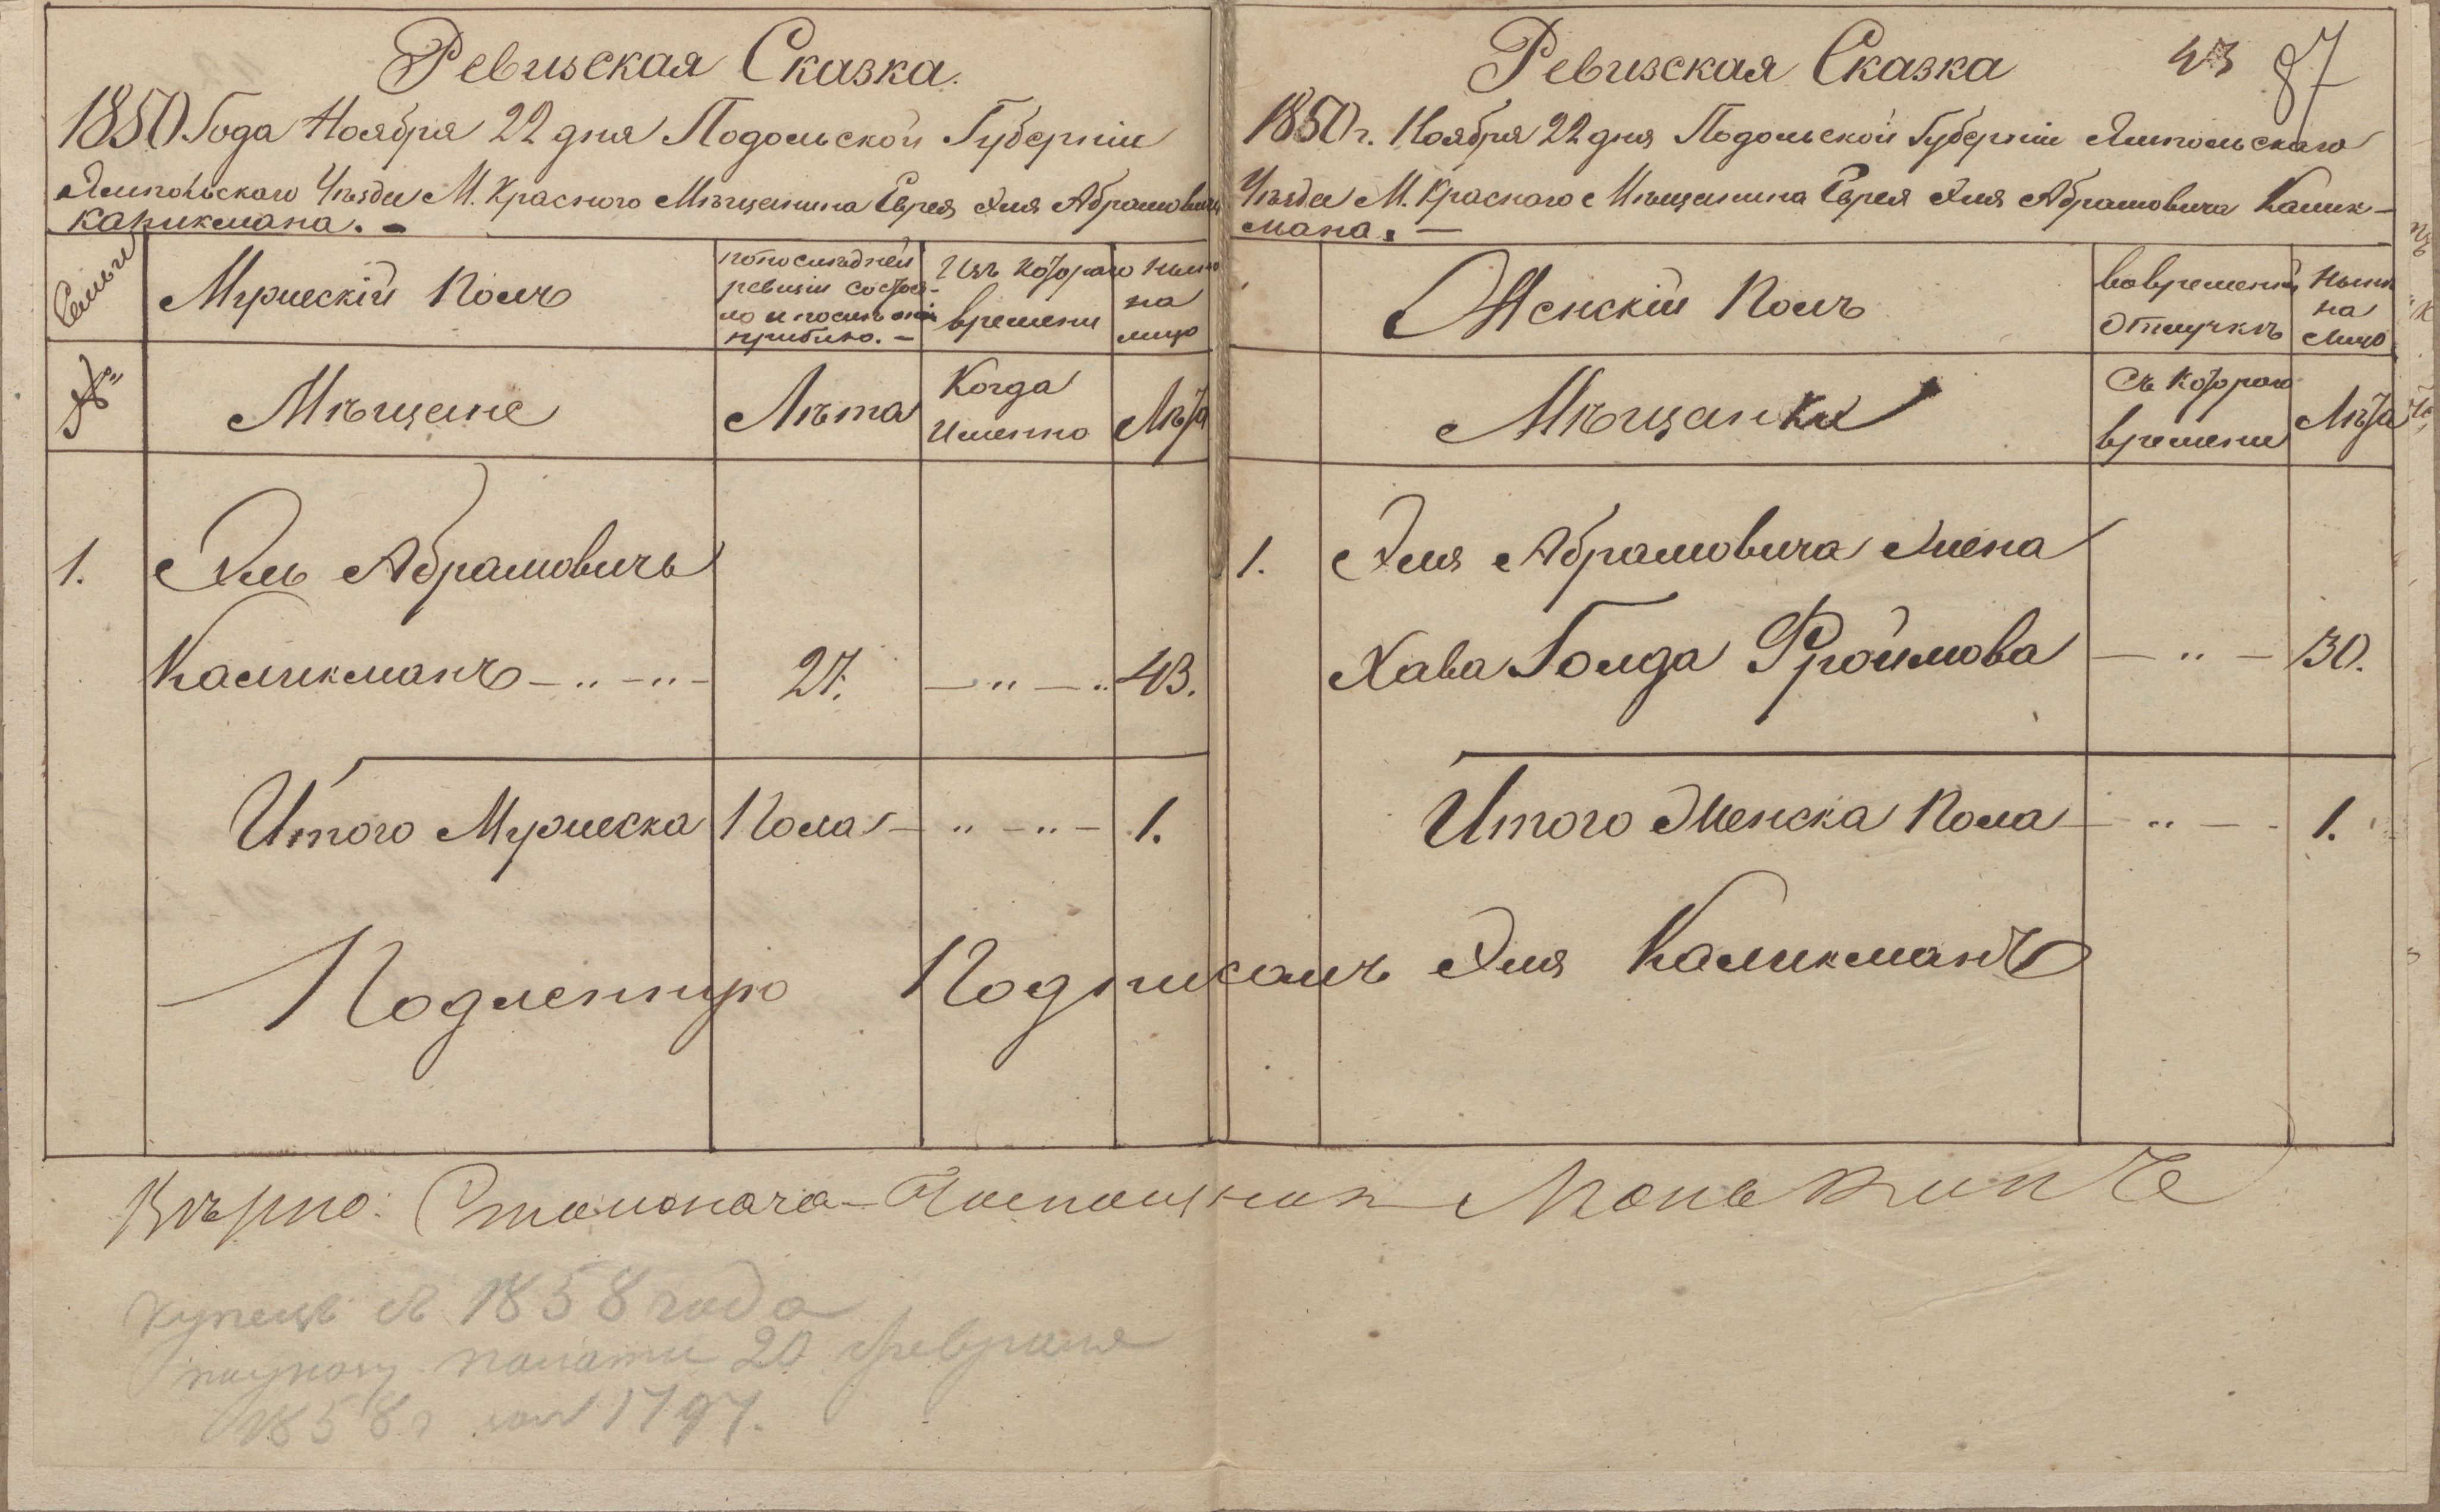 Ревизская Сказка.
1850 Года Ноября 22 дня Подольской Губерніи
Ямпольскаго Уѣзда М. Красного Мѣщанина Еврея Эля Абрамовича
Каликмана. –
Семьи
Мужескій Полъ
По последней ревизіи состояло и после оной прибыло. –
Изъ котораго времени
Ныне на лицо
№
Мѣщане
Лѣта
Когда Именно
Лѣта
1. Эль Абрамовичъ
Каликманъ – „ – „ – 27. – „ – „ 43.
Итого Мужеска Пола – „ – „ – 1.
Ревизская Сказка
43 87
1850 г. Ноября 22 дня Подольской Губерніи Ямпольскаго
Уѣзда М. Красного Мѣщанина Еврея Эля Абрамовича Калик-
мана. –
Женскій Полъ
Во временной отлучкѣ
Ныне на лицо
Мѣщанки
Съ котораго времени
Лѣта
1. Эля Абрамовича жена
Хава Голда Фроимова – „ – 30.
Итого Женска Пола – „ – 1.
Подленную Подписалъ Эля Каликманъ
Вѣрно:
купецъ съ 1858 года
палаты 20 февраля
1858 г 1797.